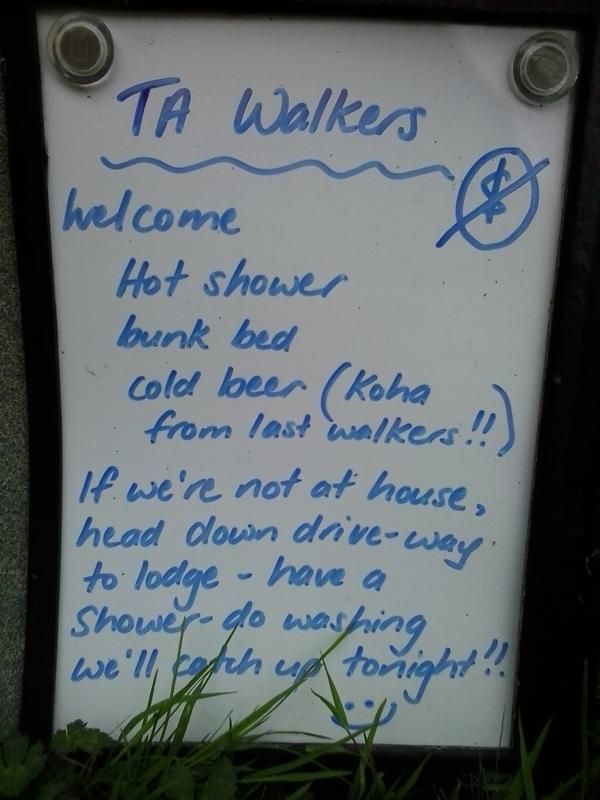 TA Walkers
$
Welcome
Hot shower
bunk bed
cold beer (Koha
from last walkers!!)
If we're not at house,
head down drive-way
to lodge - have a
shower - do washing
we'll catch up tonight!!